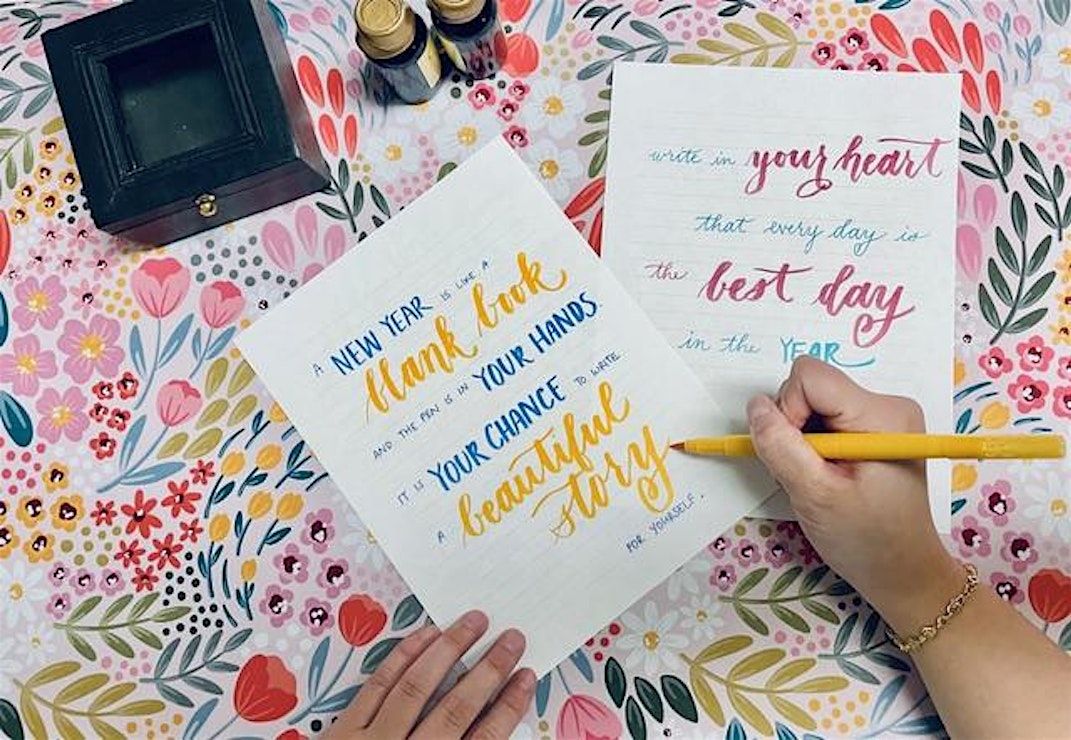 A NEW YEAR IS LIKE A
blank book
AND THE PEN IS IN YOUR HANDS.
IT IS YOUR CHANCE TO WRITE
A beautiful
story
FOR YOURSELF.
write in your heart
that every day is
the best day
in the YEAR